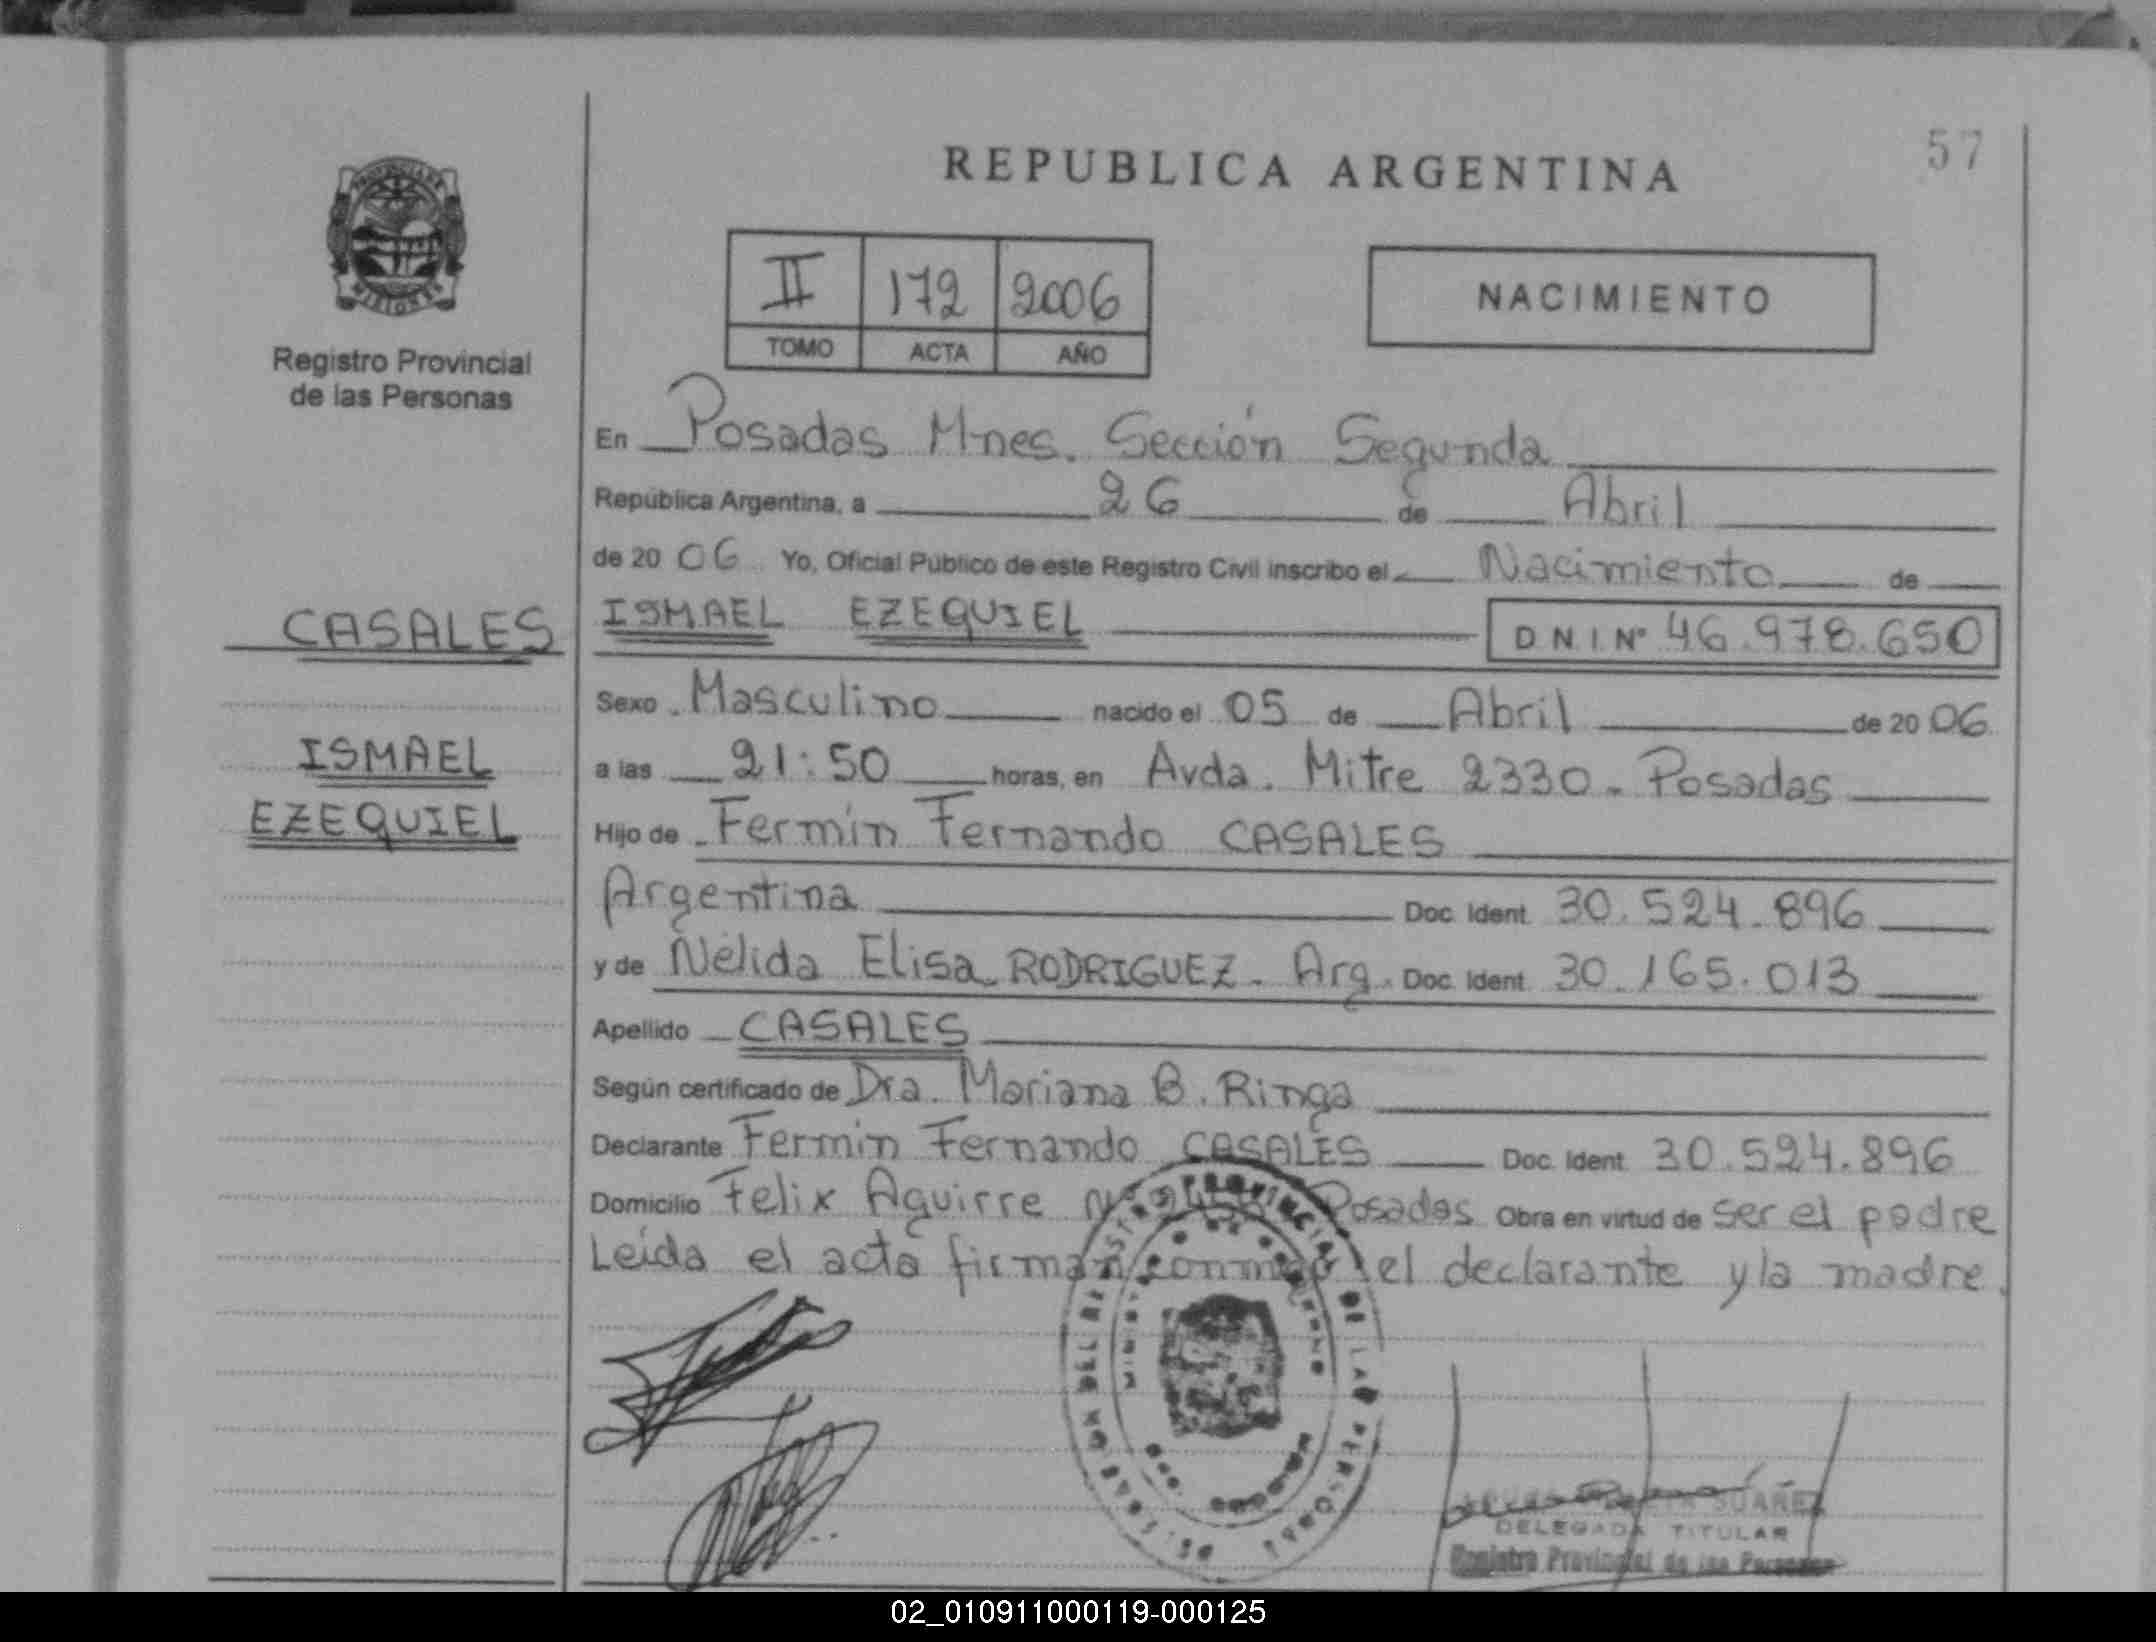 57
REPUBLICA ARGENTINA
PROVINCIA DE
MISIONES
Registro Provincial
de las Personas
II 172 2006
TOMO ACTA AÑO
NACIMIENTO
En Posadas Mnes. Sección Segunda
República Argentina, a 26 de Abril
de 20 06 Yo, Oficial Público de este Registro Civil inscribo el Nacimiento de
CASALES
ISMAEL EZEQUIEL D N I Nº 46.978.650
Sexo Masculino nacido el 05 de Abril de 20 06
ISMAEL
EZEQUIEL
a las 21:50 horas, en Avda. Mitre 2330 - Posadas
Hijo de Fermín Fernando CASALES
Argentina Doc. Ident. 30.524.896
y de Nélida Elisa RODRIGUEZ - Arg. Doc. Ident. 30.165.013
Apellido CASALES
Según certificado de Dra. Mariana B. Ringa
Declarante Fermín Fernando CASALES Doc. Ident. 30.524.896
Domicilio Felix Aguirre Nº Posadas Obra en virtud de ser el padre
Leída el acta firman conmigo el declarante y la madre.
DEL REGISTRO PROVINCIAL DE LAS PERSONAS
SUAREZ
DELEGADA TITULAR
Registro Provincial de las Personas
02_010911000119-000125